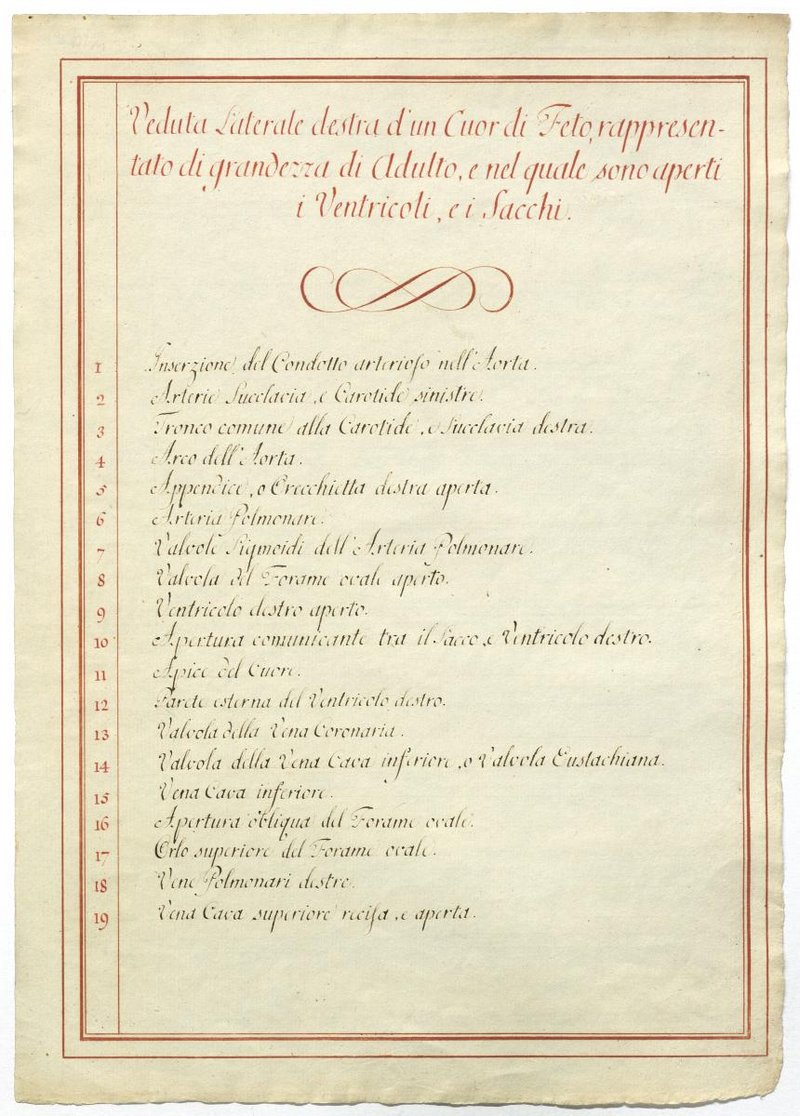 Veduta Laterale destra d'un Cuor di Feto, rappresen-
tato di grandezza di Adulto, e nel quale sono aperti
i Ventricoli, e i Sacchi.
1 Inserzione del Condotto arterioso nell'Aorta.
2 Arterie Succlavia, e Carotide sinistre.
3 Tronco comune alla Carotide, e Succlavia destra.
4 Arco dell'Aorta.
5 Appendice, o Orecchietta destra aperta.
6 Arteria Polmonare.
7 Valvole Sigmoidi dell'Arteria Polmonare.
8 Valvola del Forame ovale aperto.
9 Ventricolo destro aperto.
10 Apertura comunicante tra il Sacco, e Ventricolo destro.
11 Apice del Cuore.
12 Parete esterna del Ventricolo destro.
13 Valvola della Vena Coronaria.
14 Valvola della Vena Cava inferiore, o Valvola Eustachiana.
15 Vena Cava inferiore.
16 Apertura obliqua del Forame ovale.
17 Orlo superiore del Forame ovale.
18 Vene Polmonari destre.
19 Vena Cava superiore recisa, e aperta.